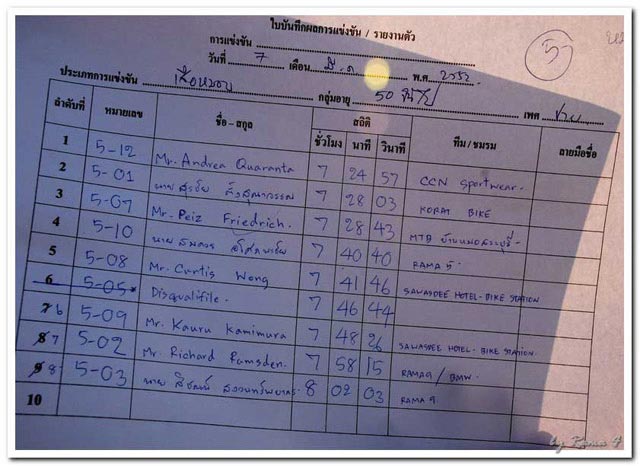 ใบบันทึกผลการแข่งขัน / รายงานตัว
5-
การแข่งขัน
วันที่ 7 เดือน มี.ค พ.ศ 2552
ประเภทการแข่งขัน เสือหมอบ กลุ่มอายุ 50 ปี เพศ ชาย
ลำดับที่ หมายเลข ชื่อ – สกุล สถิติ ทีม / ชมรม ลายมือชื่อ
ชั่วโมง นาที วินาที
1 5-12 Mr. Andrea Quaranta 7 24 57 CCN Sportwear.
2 5-01 นาย 7 28 03 KORAT BIKE
3 5-07 Mr. Peiz Friedrich. 7 28 43 MTB
4 5-10 นาย 7 40 40 RAMA 5
5 5-08 Mr. Curtis Wong 7 41 46 SAWASDEE HOTEL - BIKE STATION
6 5-05 Disqualifile. 7 46 44
7 6 5-09 Mr. Kauru Kamimura 7 48 26 SAWASDEE HOTEL - BIKE STATION.
8 7 5-02 Mr. Richard Ramsden. 7 58 15 RAMA9 / BMW.
9 8 5-03 นาย 8 02 03 RAMA 9.
10
by Rama 9